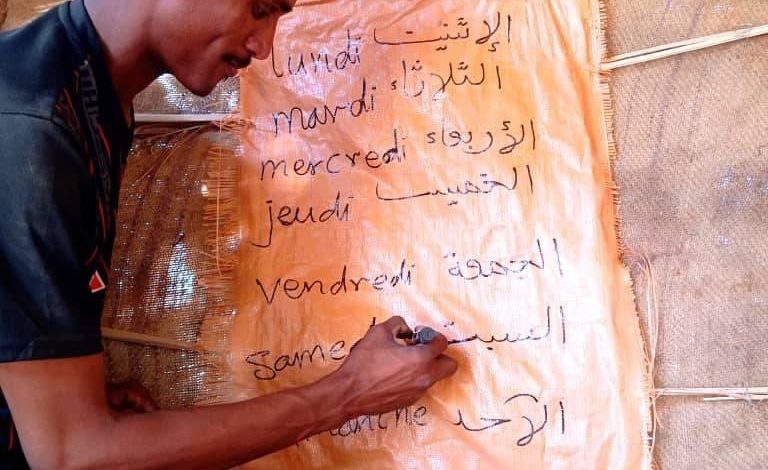 lundi الإثنيت
mardi الثلاثاء
mercredi الأربعاء
jeudi الخميس
vendredi الجمعة
samedi السبت
الآحد